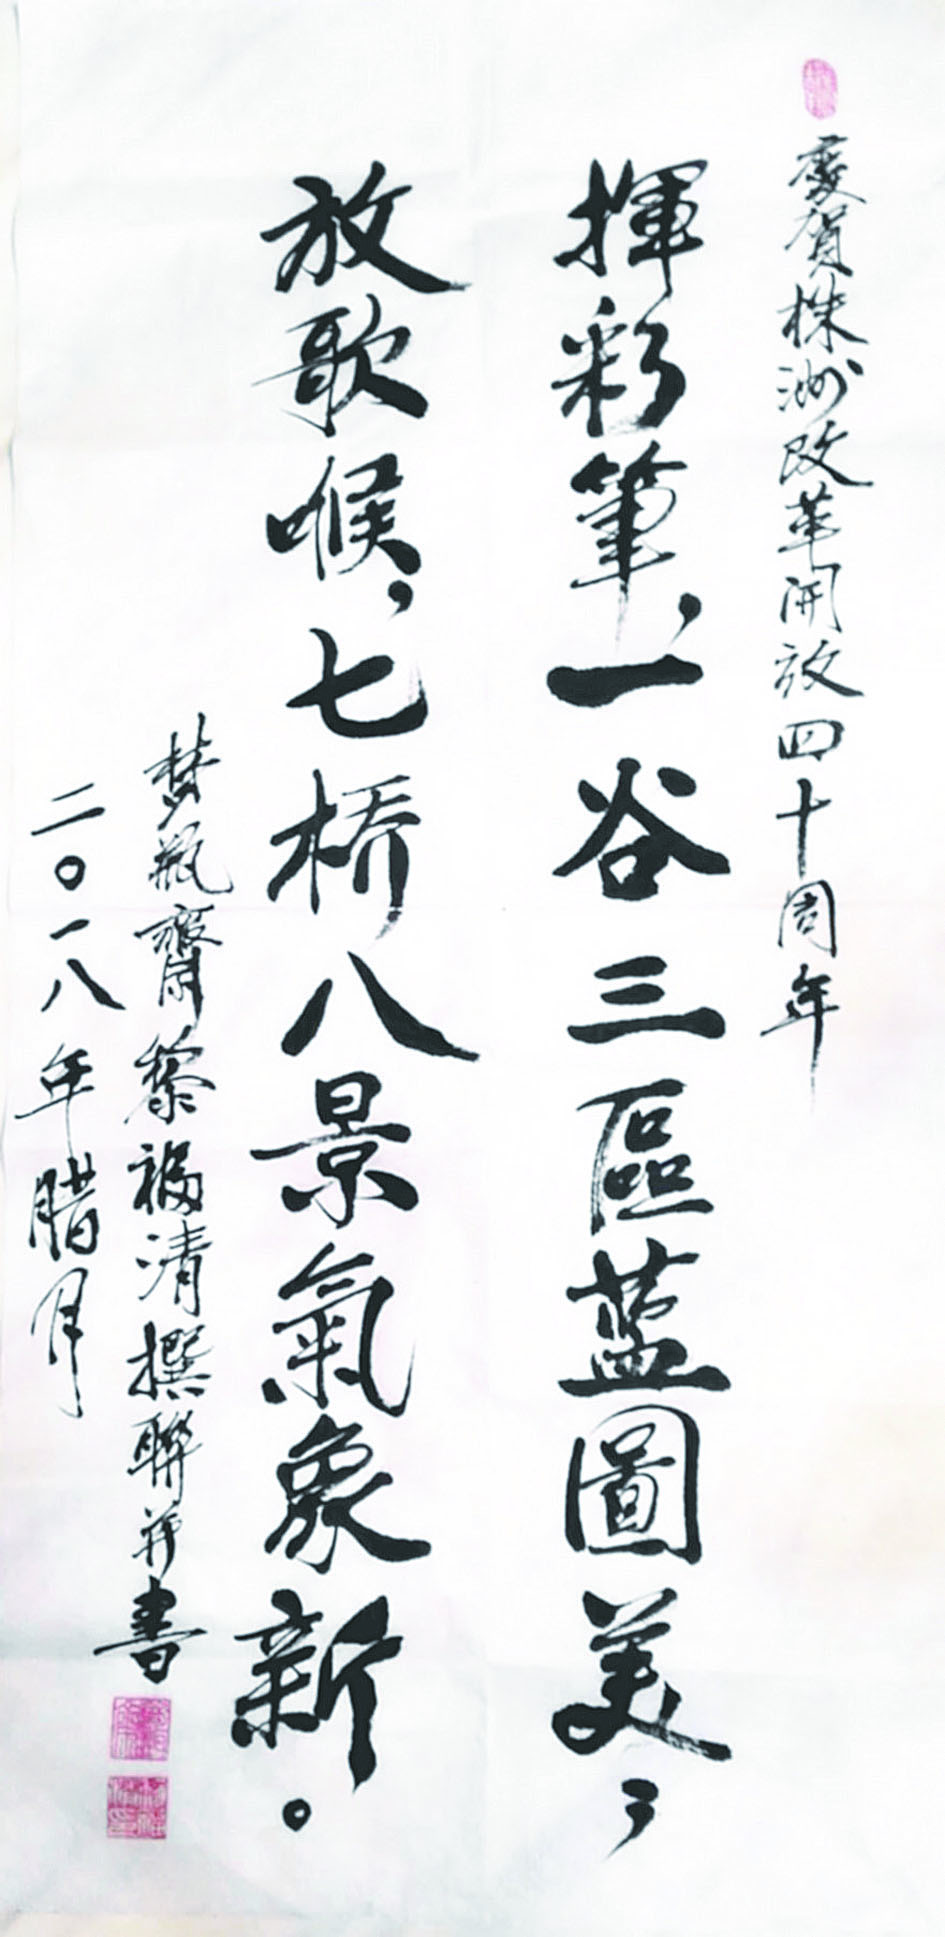 慶賀株洲改革開放四十周年
揮彩筆，一谷三區藍圖美；
放歌喉，七橋八景氣象新。
梦瓶齋黎福清撰聯并書
二〇一八年腊月